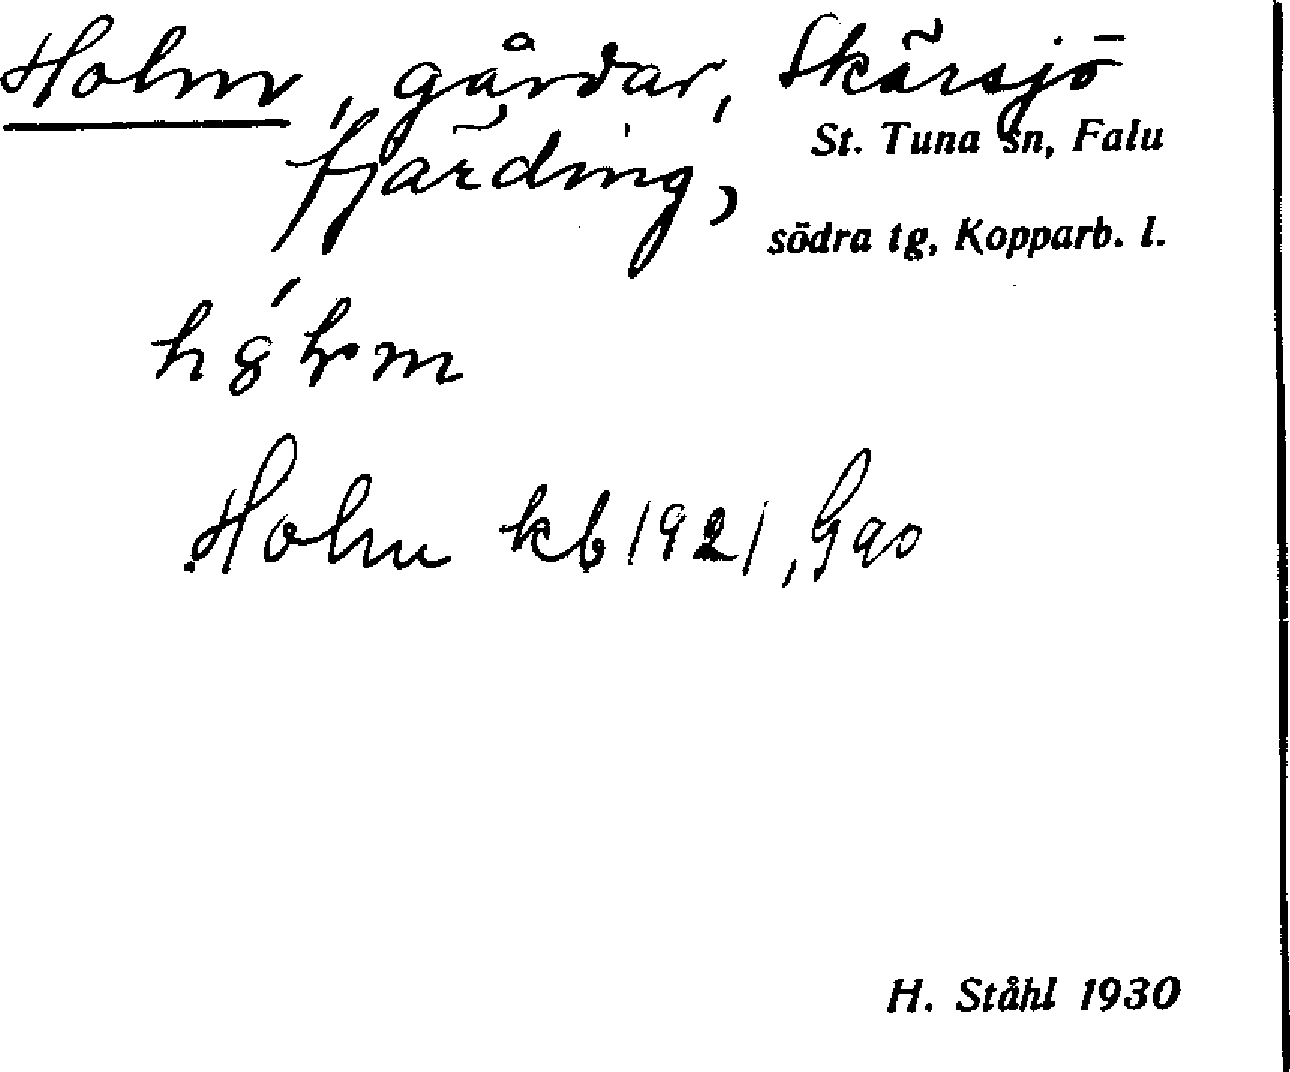 Holm, gårdar, Skärsjö
St. Tuna sn, Falu
fjärding,
södra tg, Kopparb. l.
Holm kb 1921, Gao
H. Ståhl 1930